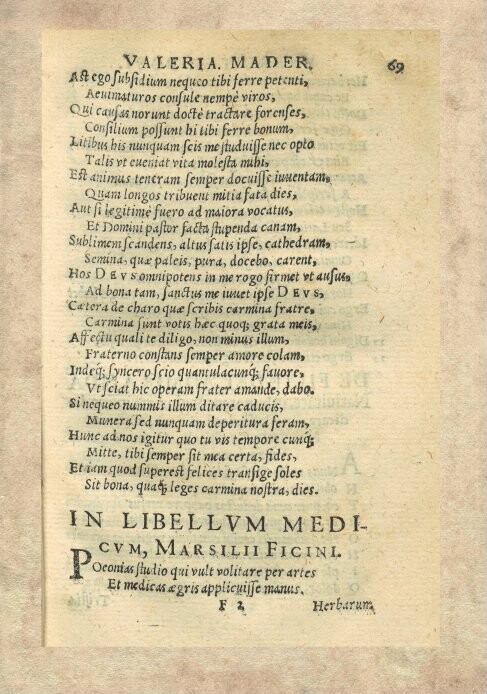 VALERIA. MADER. 69
Ast ego subsidium nequeo tibi ferre petenti,
Aeui maturos consule nempè viros,
Qui causas norunt doctè tractare forenses,
Consilium possunt hi tibi ferre bonum,
Litibus his nunquam scis me studuisse nec opto
Talis vt eueniat vita molesta mihi,
Est animus teneram semper docuisse iuuentam,
Quam longos tribuent mitia fata dies,
Aut si legitimè fuero ad maiora vocatus,
Et Domini pastor facta stupenda canam,
Sublimem scandens, altus satis ipse, cathedram,
Semina, quæ paleis, pura, docebo, carent,
Hos DEVS omnipotens in me rogo firmet vt ausus,
Ad bona tam, sanctus me iuuet ipse DEVS,
Cætera de charo quæ scribis carmina fratre,
Carmina sunt votis hæc quoq; grata meis,
Affectu quali te diligo, non minus illum,
Fraterno constans semper amore colam,
Indeq́; syncero scio quantulacunq́; fauore,
Vt sciat hic operam frater amande, dabo.
Si nequeo nummis illum ditare caducis,
Munera sed nunquam deperitura feram,
Hunc ad nos igitur quo tu vis tempore cunq;
Mitte, tibi semper sit mea certa, fides,
Et iam quod superest felices transige soles
Sit bona, quaq́; leges carmina nostra, dies.
IN LIBELLVM MEDI-
CVM, MARSILII FICINI.
Poeonias studio qui vult volitare per artes
Et medicas ægris applicuisse manus.
F 2 Herbarum